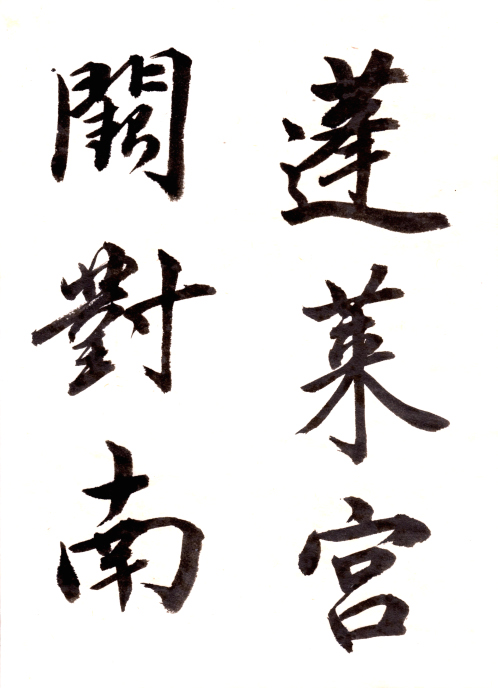 蓬萊宮
闕對南